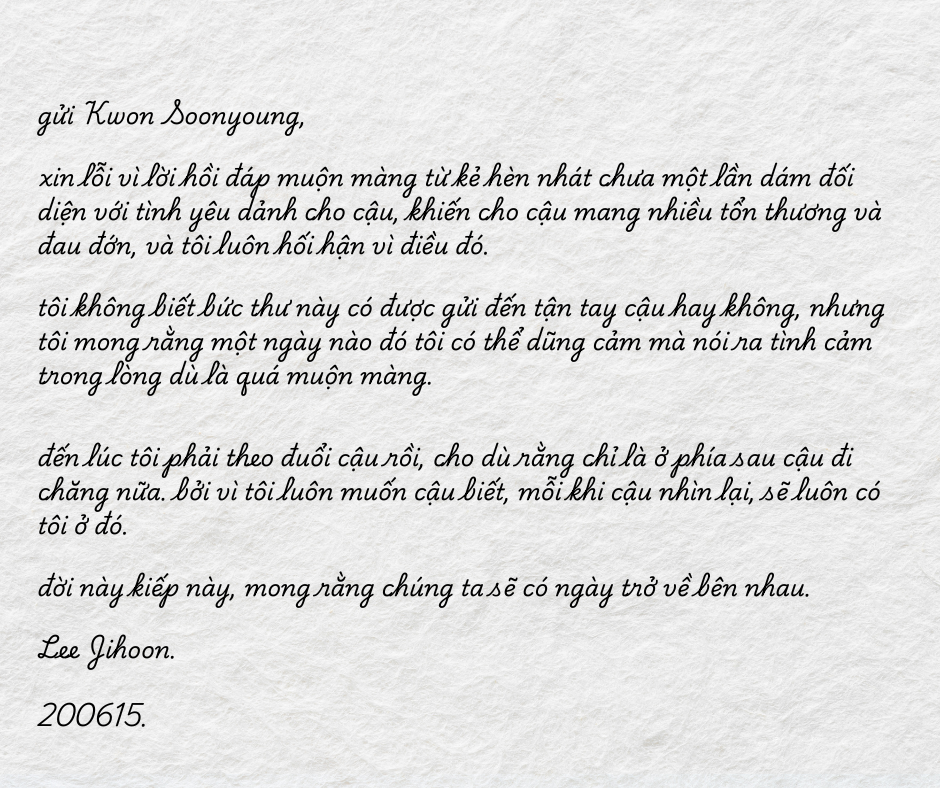 gửi Kwon Soonyoung,
xin lỗi vì lời hồi đáp muộn màng từ kẻ hèn nhát chưa một lần dám đối
diện với tình yêu dành cho cậu, khiến cho cậu mang nhiều tổn thương và
đau đớn, và tôi luôn hối hận vì điều đó.
tôi không biết bức thư này có được gửi đến tận tay cậu hay không, nhưng
tôi mong rằng một ngày nào đó tôi có thể dũng cảm mà nói ra tình cảm
trong lòng dù là quá muộn màng.
đến lúc tôi phải theo đuổi cậu rồi, cho dù rằng chỉ là ở phía sau cậu đi
chăng nữa. bởi vì tôi luôn muốn cậu biết, mỗi khi cậu nhìn lại, sẽ luôn có
tôi ở đó.
đời này kiếp này, mong rằng chúng ta sẽ có ngày trở về bên nhau.
Lee Jihoon.
200615.